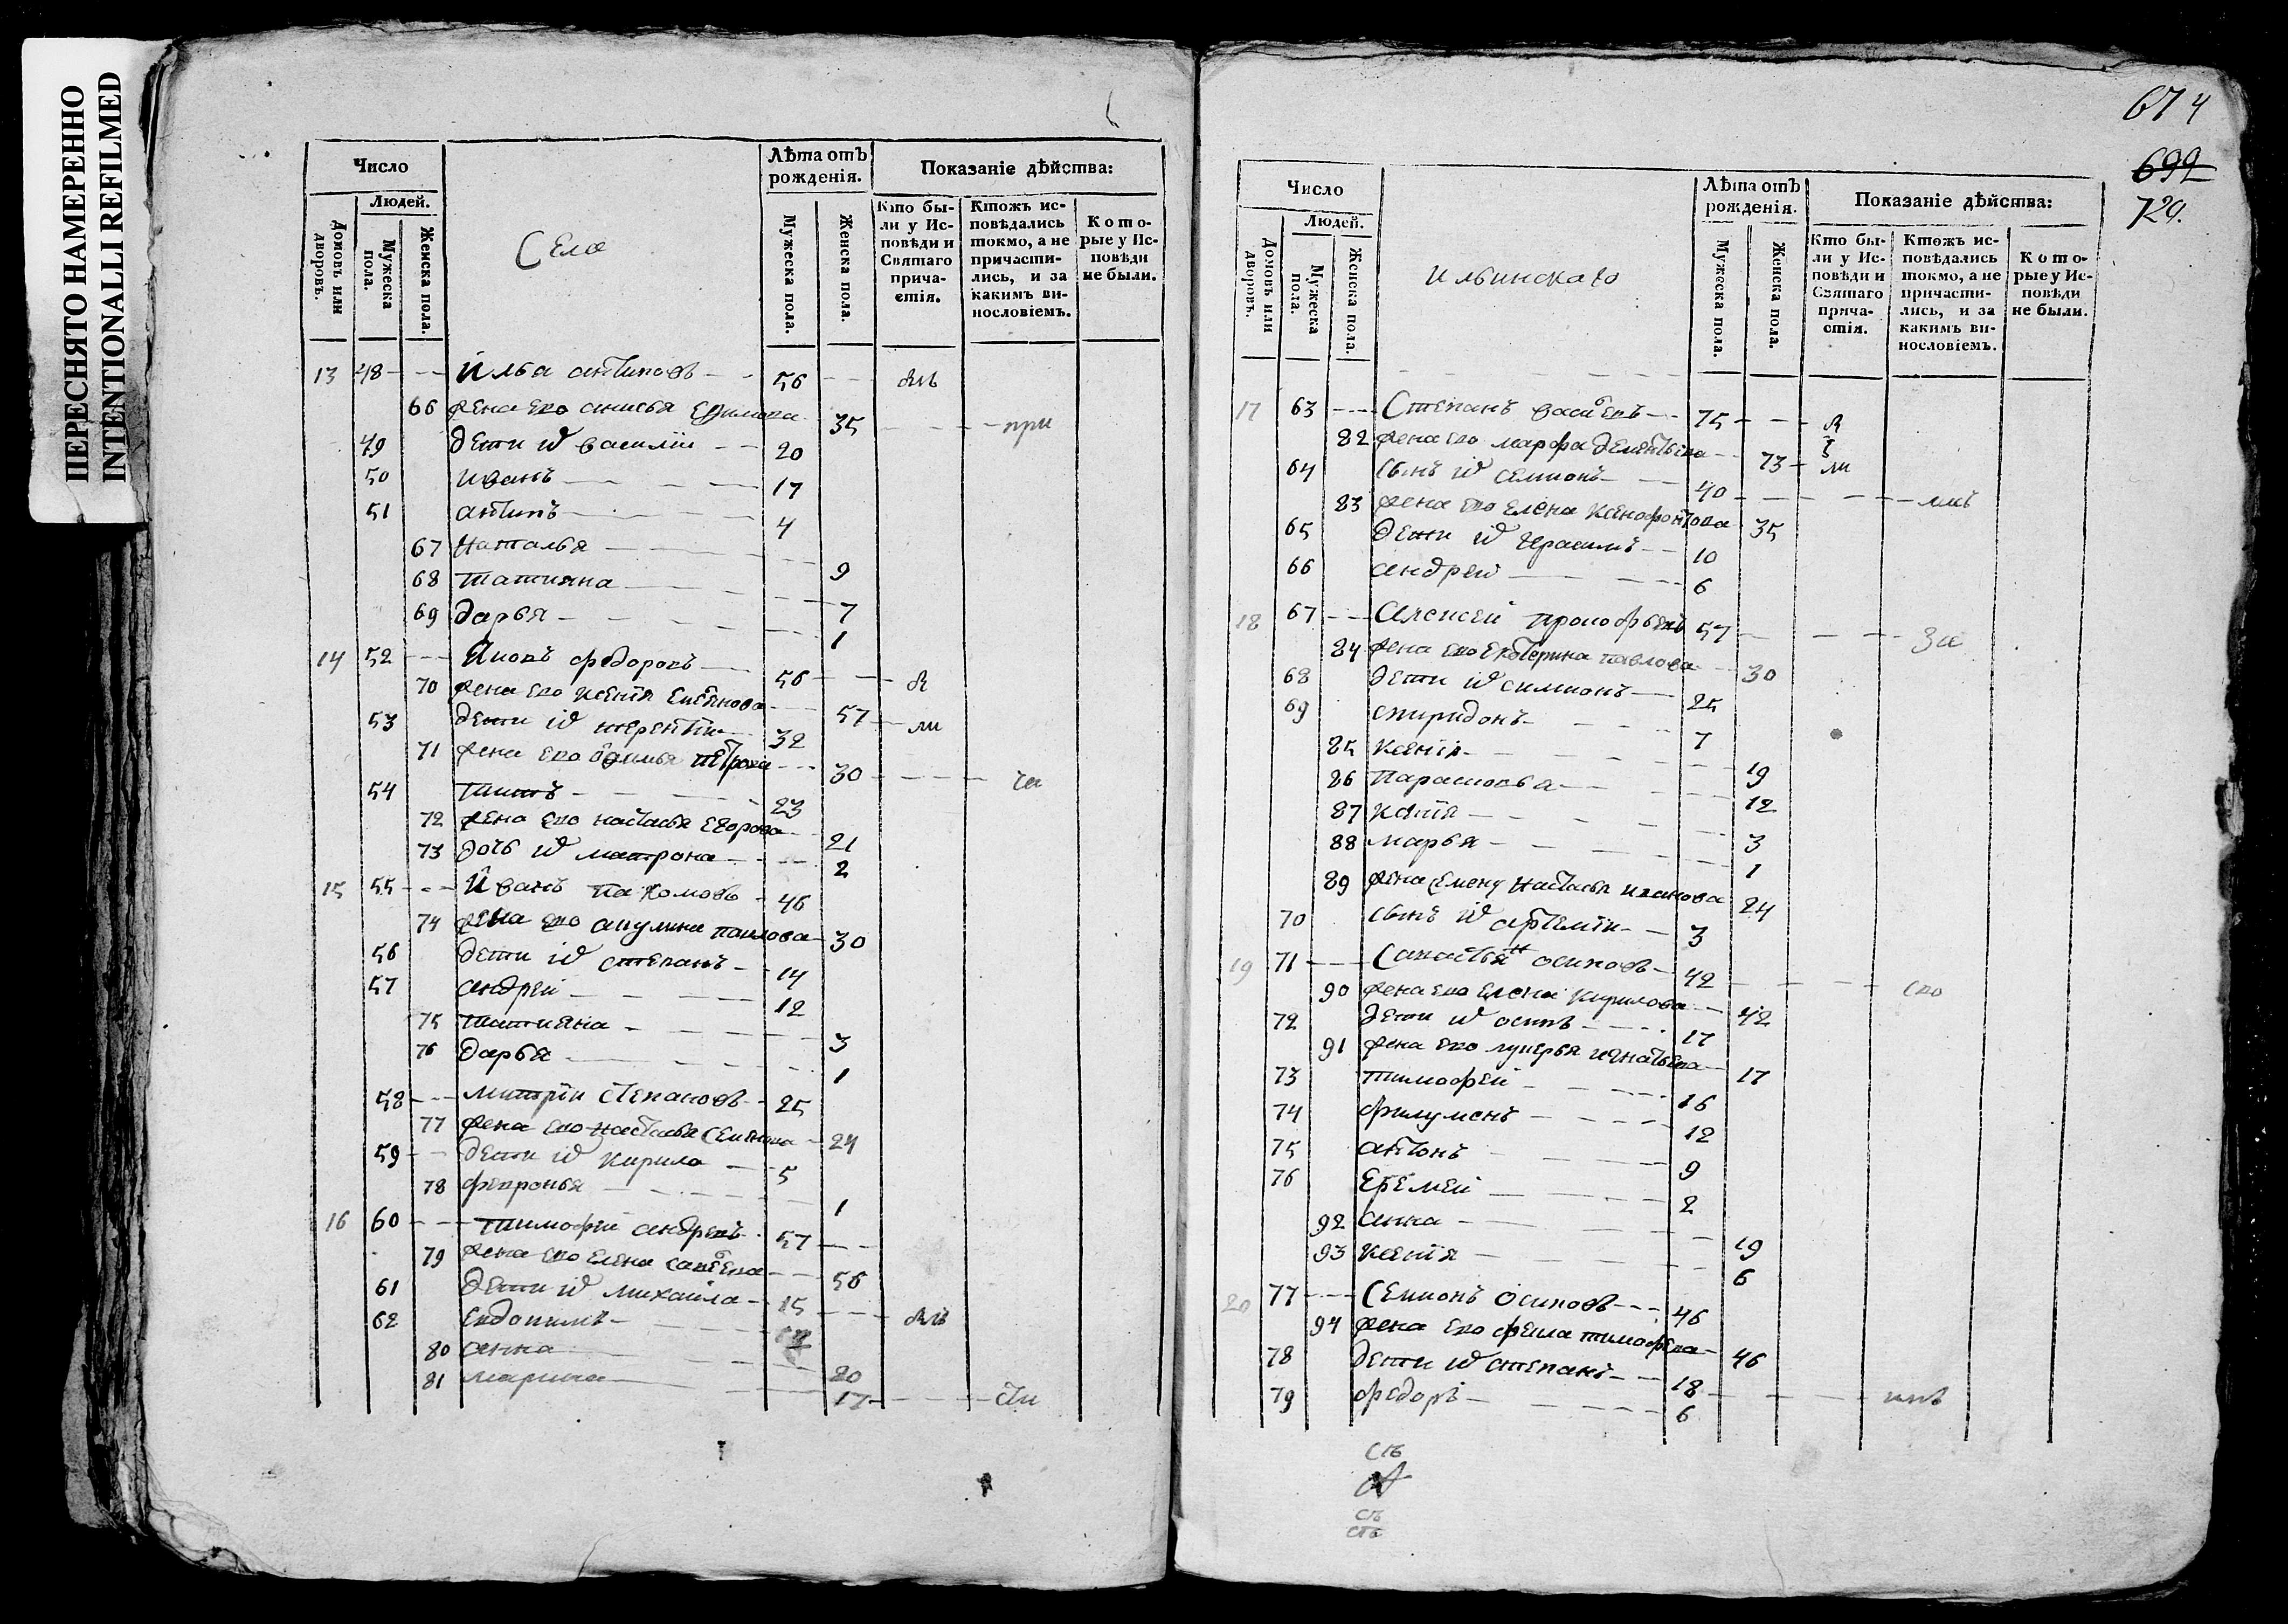 ПЕРЕСНЯТО НАМЕРЕННО
INTENTIONALLI REFILMED
Число
Людей.
Домовъ или дворовъ.
Мужеска пола.
Женска пола.
Села
Лѣта отъ рожденія.
Мужеска пола.
Женска пола.
Показаніе дѣйства:
Кто были у Исповѣди и Святаго причастія.
Ктожъ исповѣдались токмо, а не причастились, и за какимъ винословіемъ.
Которые у Исповѣди не были.
13 48 Илья антиповъ 56
66 жена ево анисья Ефимова 35 при
49 дети иѿ василіи 20
50 иванъ 17
51 антипъ 4
67 наталья 9
68 татияна 7
69 дарья 1
14 52 Яковъ федоровъ 56
70 жена ево ксенія 57 ли
53 дети иѿ терентіи 32
71 жена ево петрова 30
54 титъ 23
72 жена ево настасья Егорова 21
73 дочь иѿ матрона 2
15 55 Иванъ пахомовъ 46
74 жена ево акулина павлова 30
56 дети иѿ степанъ 14
57 андреи 12
75 татияна 3
76 дарья 1
58 митріи степановъ 25
77 жена ево настасья Семионова 24
59 дети иѿ кирило 5
78 февронья 1
16 60 тимофѣи андреевъ 57
79 жена ево елена 56
61 дети иѿ михаила 15
62 евдокимъ
80 анна 20
81 марина 17 сти
674
699
729.
Число
Людей.
Домовъ или дворовъ.
Мужеска пола.
Женска пола.
ильинскаго
Лѣта отъ рожденія.
Мужеска пола.
Женска пола.
Показаніе дѣйства:
Кто были у Исповѣди и Святаго причастія.
Ктожъ исповѣдались токмо, а не причастились, и за какимъ винословіемъ.
Которые у Исповѣди не были.
17 63 Степанъ 75
82 жена ево марфа дементьева 73 ли
64 сынъ иѿ семионъ 40
83 жена ево елена ксенофонтова 35
65 дети иѿ герасимъ 10
66 андреи 6
18 67 Алексеи прокофьевъ 57 за
84 жена ево екатерина павлова 30
68 дети иѿ симионъ 25
69 спиридонъ 7
85 ксенія 19
86 парасковья 12
87 3
88 марья 1
89 жена Семену настасья иванова 24
70 сынъ иѿ артеміи 3
19 71 осиповъ 42
90 жена ево елена кирилова 42
72 дети иѿ осипъ 17
91 жена ево лукерья игнатьева 17
73 тимофеи 16
74 филумонъ 12
75 антонъ 9
76 еремеи 2
92 анна 19
93 ксенія 6
20 77 Семионъ осиповъ 46
94 жена ево фекла тимофеева 46
78 дети иѿ степанъ 18
79 федоръ 6